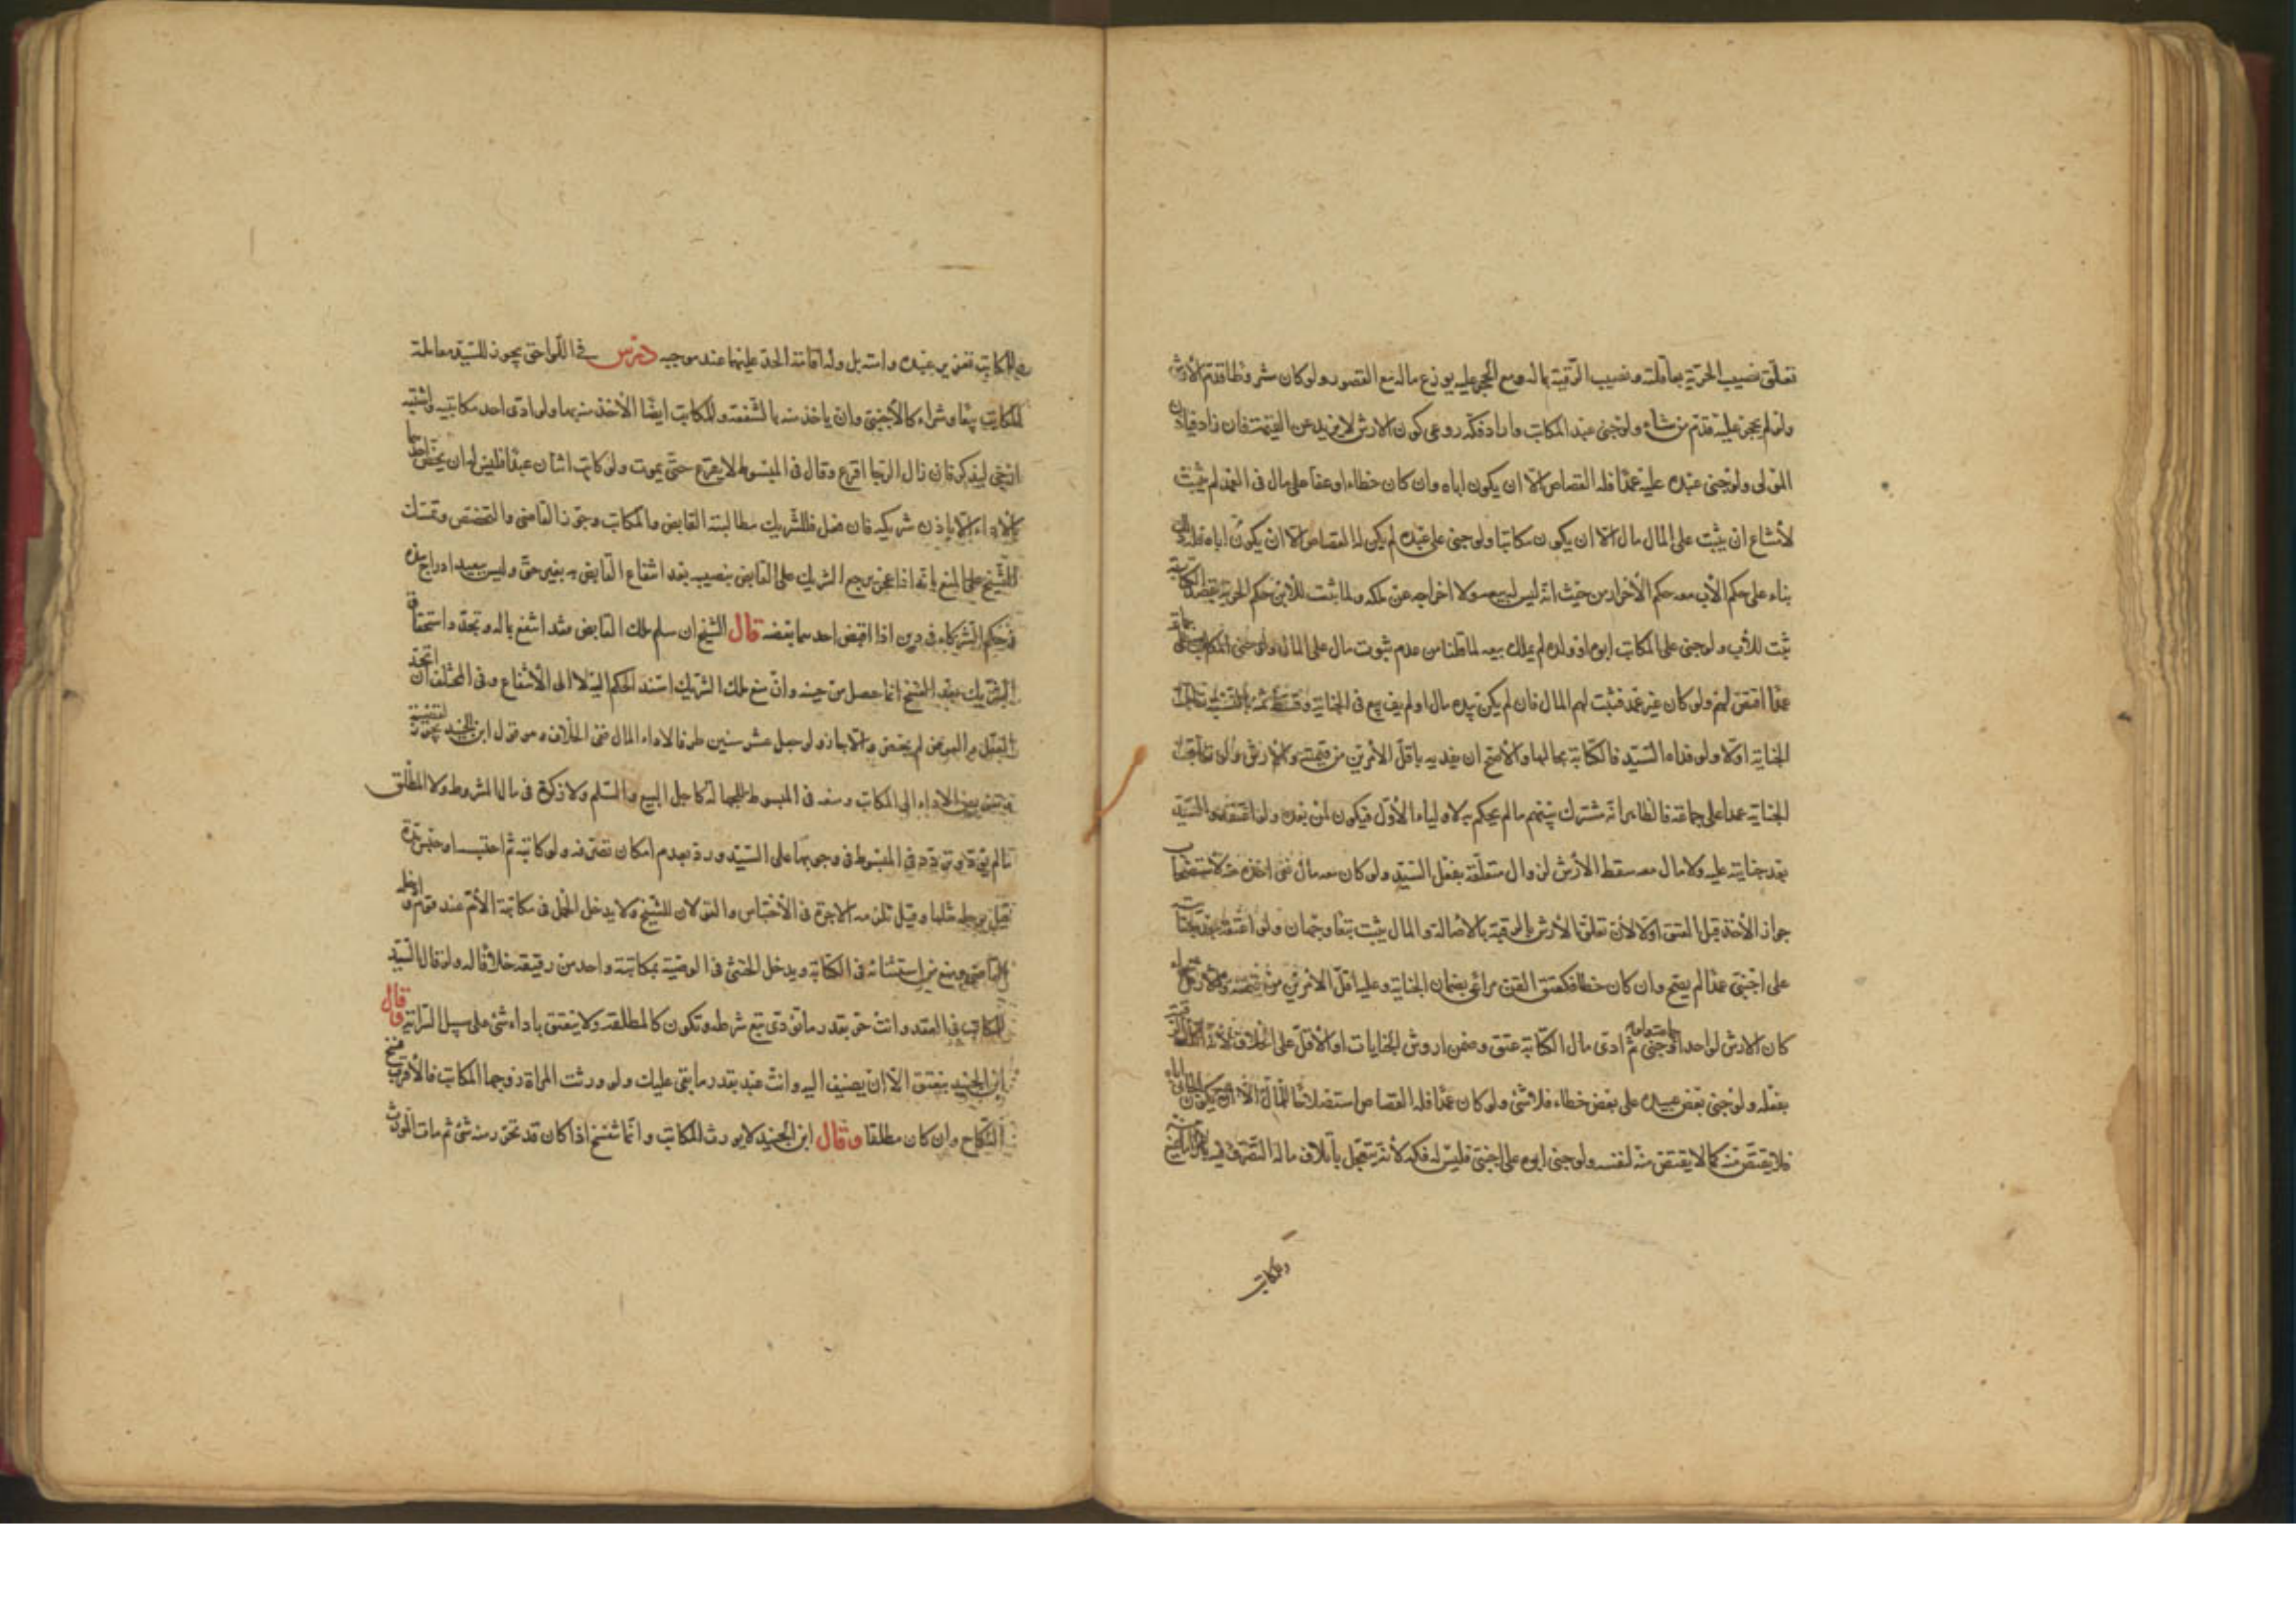 تعلق نصيب الحرية بعاقلته ونصيب الرقبة بماله ومع الحجر عليه يوزع ماله مع القصور ولو كان مشروطا قدم الأرش
ولو لم يحجر عليه قدم من شاء ولو جنى عبد المكاتب واراد فكه روعى كون الارش لا يزيد عن القيمة فان زاد فباذن
المولى ولو جنى عبده عليه عمدا فله القصاص الا ان يكون اباه وان كان خطاء او عفا على مال فى العمد لم يثبت
لامتناع ان يثبت على المال مال الا ان يكون مكاتبا ولو جنى على عبده لم يكن له القصاص الا ان يكون اباه
بناء على حكم الأب معه حكم الأحرار من حيث انه ليس له بيعه ولا اخراجه عن ملكه ولما يثبت للابن حكم الحرية
ثبت للأب ولو جنى على المكاتب ابوه او ولده لم يملك بيعه لما قلنا من عدم ثبوت مال على المال ولو جنى المكاتب على
عمدا اقتص لهم ولو كان غير عمد فثبت لهم المال فان لم يكن بيده مال او لم يف بيع فى الجناية وقسط ثمنه
الجناية اولا ولو فداه السيد فالكتابة بحالها والاصح ان يفديه باقل الامرين من قيمته والارش ولو
الجناية عمدا على جماعة فالظاهر انه مشترك بينهم ما لم يحكم به لاولياء الأول فيكون لمن بعده ولو اعتقه السيد
بعد جنايته عليه ولا مال معه سقط الأرش لزوال متعلقه بفعل السيد ولو كان معه مال ففى اخذه منه لاستصحاب
جواز الأخذ قبل العتق اولا لأن تعلق الأرش بالرقبة بالاصالة والمال يثبت تبعا وجهان ولو اعتقه بعد
على اجنبى عمدا لم يصح وان كان خطا فكعتق القن مراعى بضمان الجناية وعليه اقل الامرين من قيمته والارش
كان الارش لواحد او جنى ثم ادى مال الكتابة عتق وضمن اروش الجنايات او الأقل على الخلاف لأنه
بفعله ولو جنى بعض عبيده على بعض خطاء فلا شئ ولو كان عمدا فله القصاص استصلاحا للمال الا ان يكون
فلا يقتص منه كما لا يقتص منه لنفسه ولو جنى ابوه على اجنبى فليس له فكه لأنه يتعجل باتلاف ماله التصرف فيه
وللمكاتب
وللمكاتب تعزير عبده وامته بل وله اقامة الحد عليهما عند موجبه درس فى اللواحق يجوز للسيد معاملة
المكاتب بيعا وشراء كالأجنبى وان ياخذ منه بالشفعة وللمكاتب ايضا الأخذ منه بها ولو ادى احد مكاتبيه واشتبه
ارجى ليذكر فان زال الرجا اقرع وقال فى المبسوط لا يقرع حتى يموت ولو كاتب اثنان عبدا فليس له ان يخص احدهما
بالاداء الا باذن شريكه فان فعل فللشريك مطالبة القابض والمكاتب وجوز القاضى التخصص وتمسك
الشيخ على المنع بانه اذا عجز يرجع الشريك على القابض بنصيبه بعد انتفاع القابض به بغير حق وليس ببعيد ادراج هذه
فى حكم الشركاء فى دين اذا اقبض احدهما بعضه قال الشيخ ان سلم ملك القابض فقد انتفع بماله وتجدد استحقاق
الشريك بعد الفسخ انما حصل من حينه وان منع ملك الشريك استند الحكم اليه لا الى الأنتفاع وفى المختلف ان اتحد
العقد والعوض لم يختص والا جاز ولو جعل عشر سنين ظرفا لاداء المال ففى الخلاف وهو قول ابن الجنيد يجوز
تعيين الاداء الى المكاتب ومنعه فى المبسوط للجهالة كاجل البيع والسلم ولا زكوة فى مال المشروط ولا المطلق
ما لم يؤد وتردد فى المبسوط فى وجوبها على السيد ورد بعدم امكان تصرفه ولو كاتبه ثم احتبسه او حبس مدة
قيل يؤجله مثلها وقيل تلزمه الاجرة فى الأحتباس والقولان للشيخ ولا يدخل الحمل فى مكاتبة الأم عند قوم
القاضى ومنع من استثنائه فى الكتابة ويدخل الخنثى فى الوصية بمكاتبة واحد من رقيقه خلافا له ولو قال السيد
للمكاتب فى العقد وانت حر بقدر ما تؤدى تبع شرطه وتكون كالمطلقة ولا ينعتق باداء شئ على سبيل السراية قال
ابن الجنيد ينعتق الا ان يضيف اليه وانت عبد بقدر ما بقى عليك ولو ورثت المراة زوجها المكاتب فالأقرب فسخ
النكاح وان كان مطلقا وقال ابن الجنيد لا يورث المكاتب وانما تفسخ اذا كان قد تحرر منه شئ ثم مات المورث